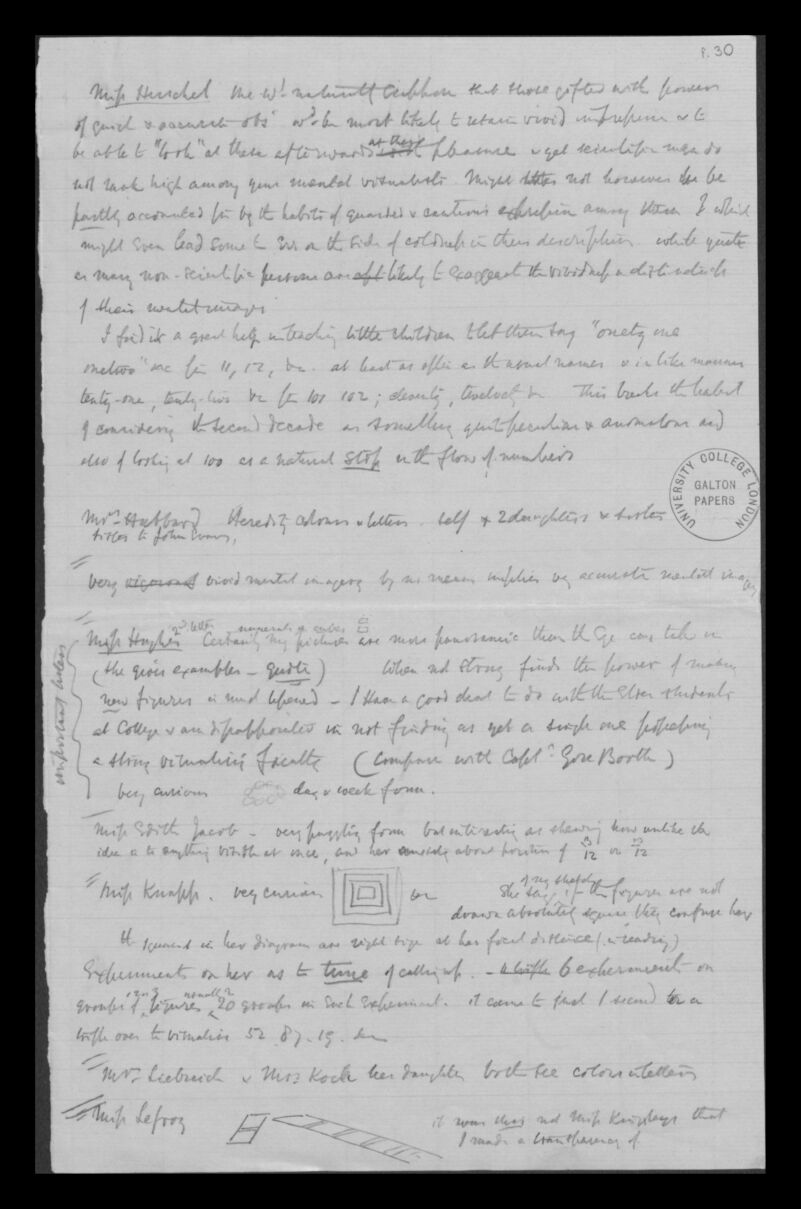 P. 30
Miss Herschel One wd. naturally suppose that those gifted with powers
of quick & accurate obs wd be most likely to retain vivid impression & to
be able to "look" at these afterwards at their pleasure & yet scientific men do
not rank high among your mental visualists. Might this not however be
partly accounted for by the habits of guarded & cautious expression among them & which
might even lead some to err on the side of coldness in their description while quite
as many non-scientific persons are apt likely to exaggerate the vividness & distinctness
of their mental images
I find it a great help in teaching little children to let them say "onety one
onetwo" &c for 11, 12, &c. at least as often as the usual names & in like manner
tenty-one, tenty-two &c for 101 102 ; eleventy, twelvety &c This breaks the habit
of considering the second decade as something quite peculiar & anomalous and
also of looking at 100 as a natural stop in the flow of numbers
UNIVERSITY COLLEGE LONDON
GALTON
PAPERS
Mrs Hubbard Heredity colours & letters. self & 2 daughters & sister
sister to John Evans,
very vivid mental imagery by no means implies very accurate mental imagery
important letters
2nd letter numerals & cubes
Miss Hughes Certainly my pictures are more panoramic than the Eye can take in
(She gives examples - quote) When not strong finds the power of making
new figures is much lessened - I have a good deal to do with the Elder students
at College & am disappointed in not finding as yet a single one possessing
a strong visualising faculty (Compare with Capt Gore Booth)
very curious day & week form.
Miss Edith Jacob - very puzzling form but interesting as shewing how unlike the
idea is to anything visible at once, and her about position of 13 12 or 13 12
Miss Knapp. very curious or She says if the figures of my sketch are not
drawn absolutely square they confuse her
the squares in her diagram are right size at her focal distance (in reading)
Experiments on her as to time of calling up. - 6 experiments on
groups of 2 or 3 figures, usually 20 groups in each experiment. it came to just 1 second or a
trifle over to visualise 52. 87. 19. &c
Mrs Liebreich & Mrs Koch her daughter both see colours & letters
Miss Lefroy
it was this and not Miss Kingsley's that
I made a transparency of